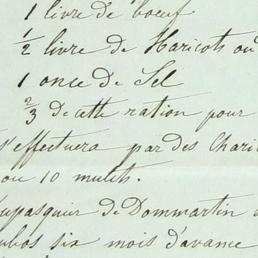 1 livre de boeuf
1/2 livre de Haricots ou
1 once de Sel
2/3 de cette ration pour
s'effectuera par des Chari
ou 10 mulets.
upasquier de Dommartin
ubos six mois d'avance